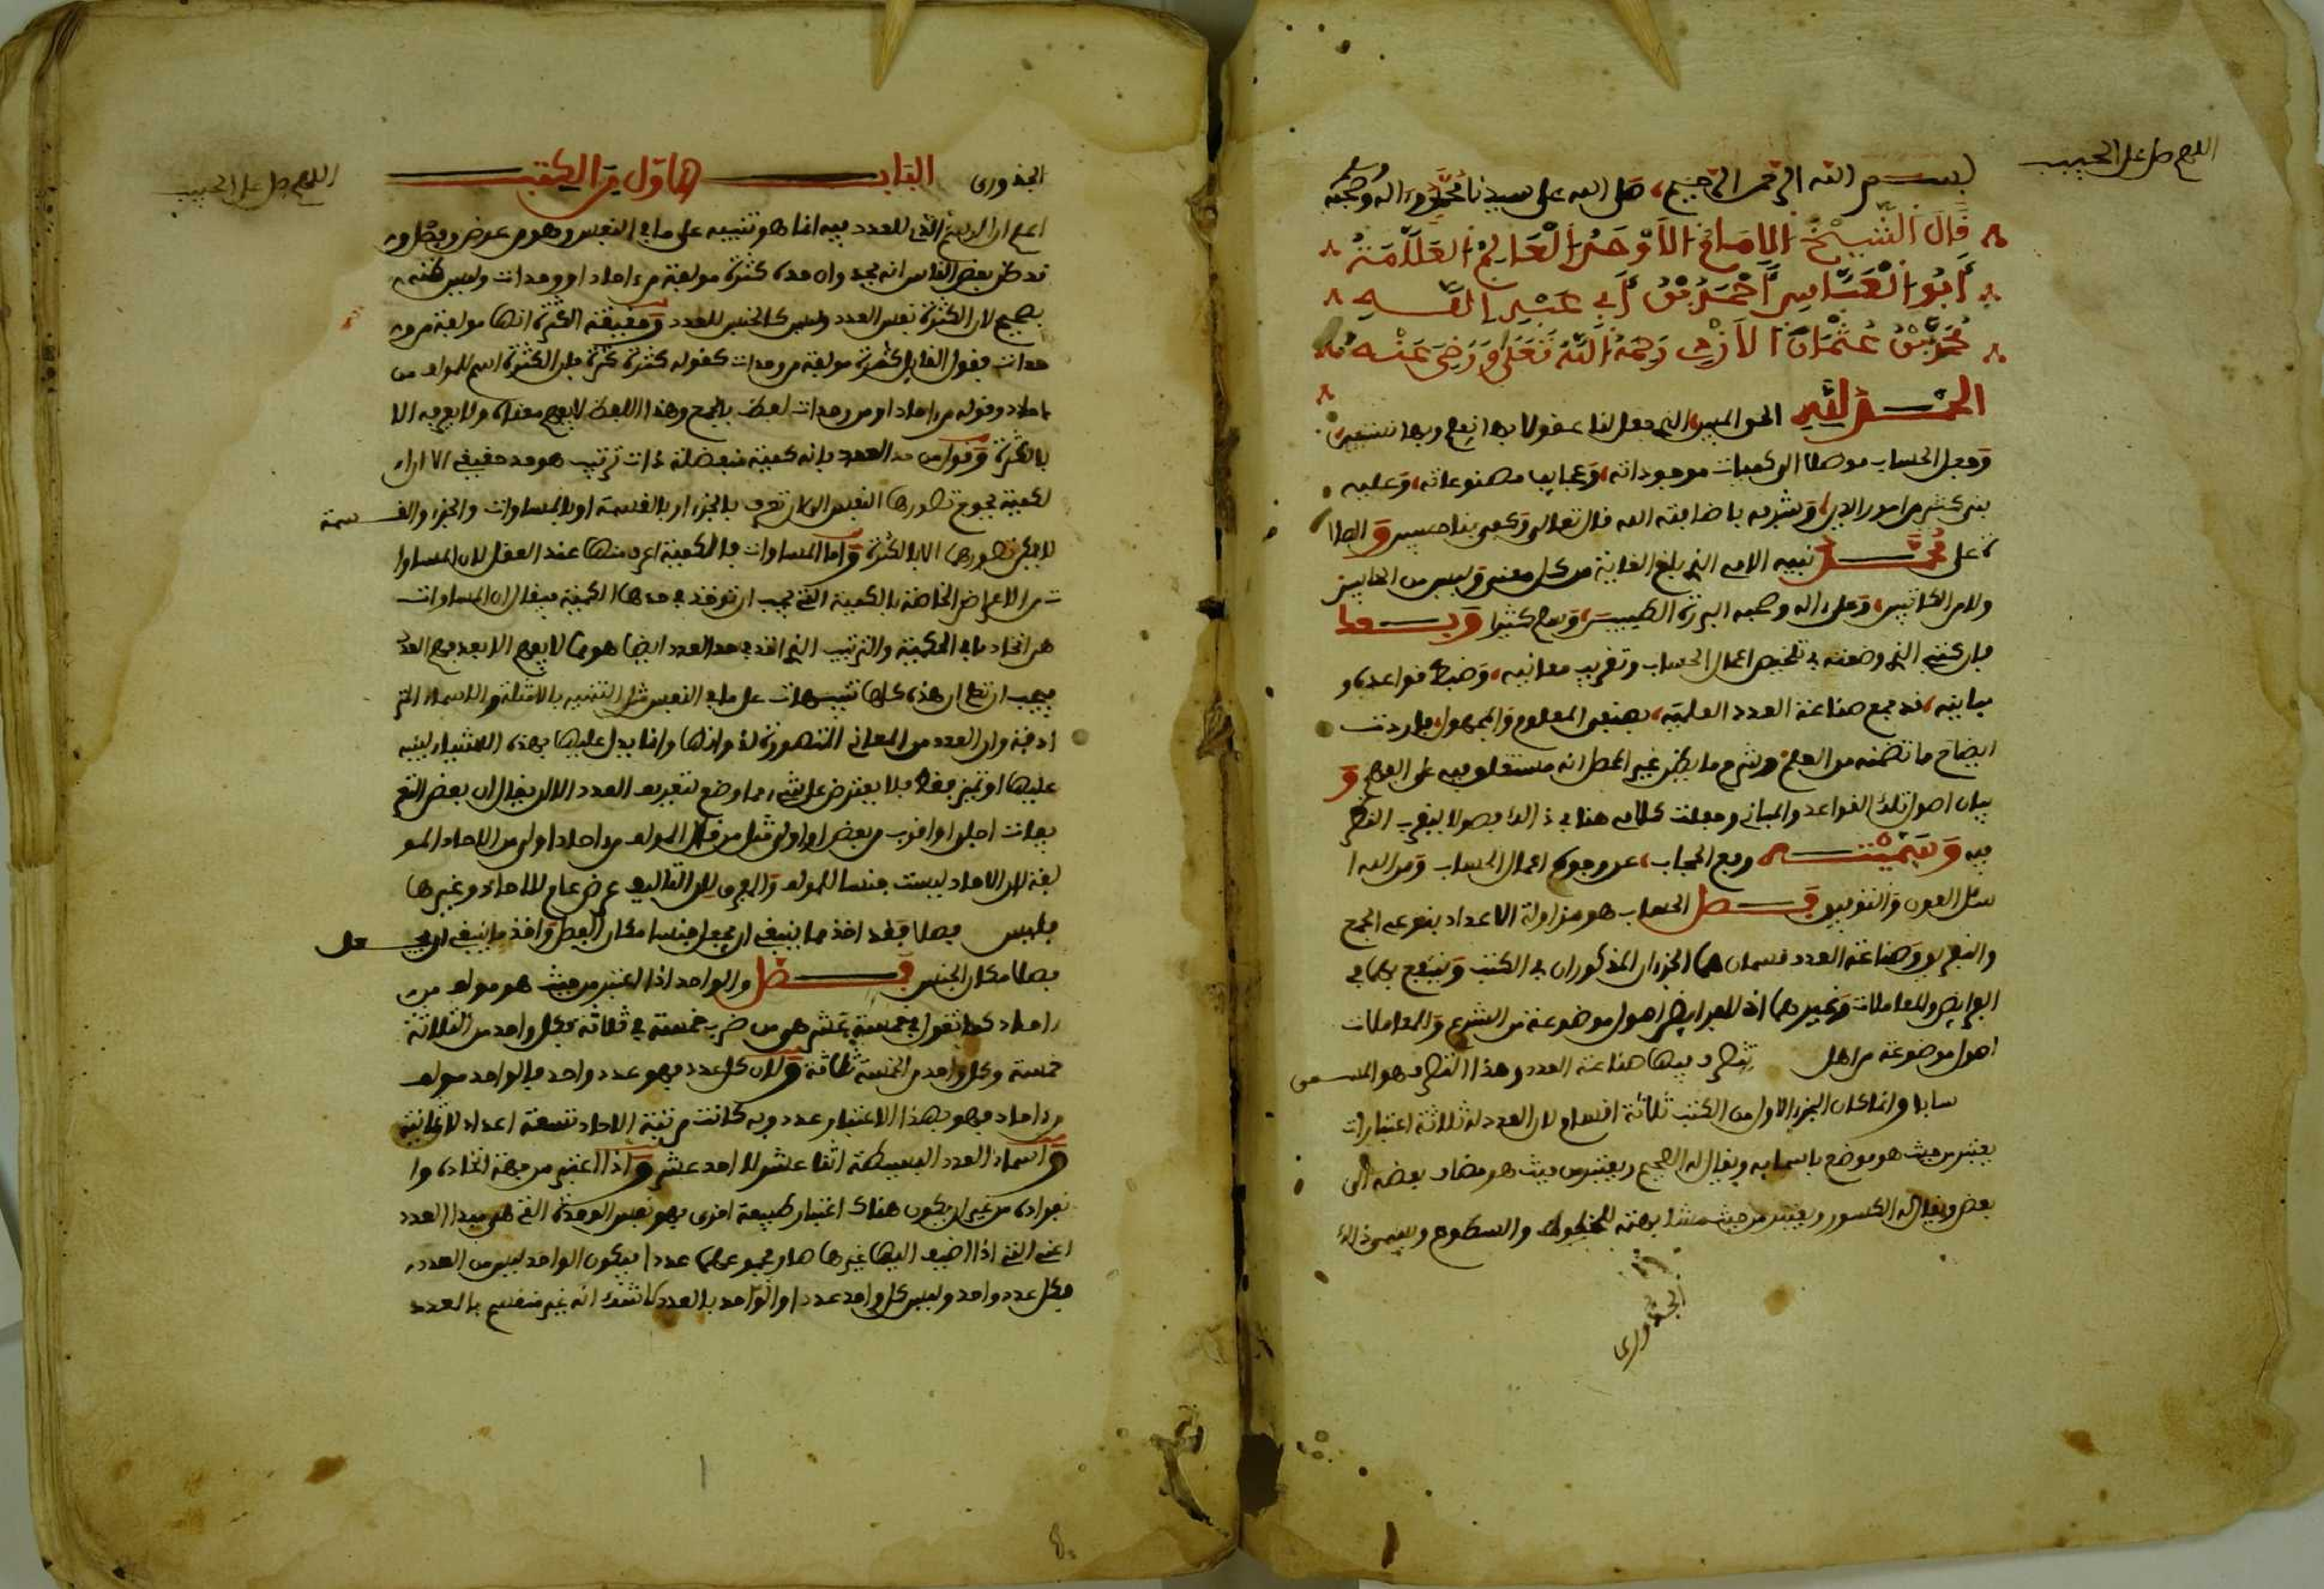 اللهم صل على الحبيب
بسم الله الرحمن الرحيم صلى الله على سيدنا محمد وءاله وصحبه وسلم
قال الشيخ الامام الاوحد العالم العلامة
ابو العباس احمد بن ابي عبد الله
محمد بن عثمان الازدي رحمه الله تعلى ورضي عنه
الحمد لله الحق المبين الذي جعل لنا عقولا بها نعلم وبها نستبين
وجعل الحساب موصلا الى كميات موجوداته وعجايب مصنوعاته وعليه
بنى كثير من امور الدين وشرفه باضافته اليه فقال تعالى وكفى بنا حسبين والصلا
ة على محمد نبيه الامي الذي بلغ الغاية من كل معنى وليس من الحاسبين
ولا من الكاتبين وعلى ءاله وصحبه البررة الطيبين وسلم كثيرا وبعد
فان كتبي الذي وضعته في تلخيص اعمال الحساب وتقريب معانيه وضبط قواعده و
مبانيه قد جمع صناعة العدد العلمية بصنفي المعلوم والمجهول فاردت
ايضاح ما تضمنه من العلم وشرح ما يظن غير المحصل انه مستغلق فيه على الفهم و
بيان اصول تلك القواعد والمباني وجعلت كلامي هنا في ذالك فصولا ليقرب النظر
فيه وسميته رفع الحجاب عن وجوه اعمال الحساب ومن الله ا
سئل العون والتوفيق فصل الحساب هو مزاولة الاعداد بنوعي الجمع
والتفريق وصناعة العدد قسمان هما الجزءان المذكوران في الكتب وينتفع بهما في
الفرايض والمعاملات وغيرهما اذ للفرايض اصول موضوعة من الشرع والمعاملات
اصول موضوعة من اهل تتطرف فيها صناعة العدد وهذا التطرف هو المسمى
حسابا وانما كان الجزء الاول من الكتب ثلاثة اقسام لان العدد له ثلاثة اعتبارات
يعتبر من حيث هو موضع باسمايه ويقال له الصحيح ويعتبر من حيث هو مضاف بعضه الى
بعض ويقال له الكسور ويعتبر من حيث مشابهته للخطوط والسطوح ويسمى ذالك
الجذوري
اللهم صل على الحبيب
الجذوري الباب الاول من الكتب
اعلم ان الاسم الذي للعدد فيه انما هو تنبيه على ما في النفس وهو من عرض وفصل و
قد ظن بعض الناس انه يحد وان حده كثرة مولفة من ءاحاد او وحدات وليس ظنه
بصحيح لان الكثرة نفس العدد وليس كالجنس للعدد وحقيقة الكثرة انها مولفة من و
حدات فقول القايل كثرة مولفة من وحدات كقوله كثرة كثرة فان الكثرة اسم للمولف من
ءاحاد وقوله من ءاحاد او من وحدات لفظ بالجمع وهذا اللفظ لا يفهم معناه ولا يعرف الا
بالكثرة وقول من حد العدد بانه كمية منفصلة ذات ترتيب هو حد حقيقي الا ان ا
لكمية يحوج تصورها النفس الى ان تعرف بالجزء او بالقسمة او بالمساوات والجزء والقسمة
لا يمكن تصورهما الا بالكثرة واما المساوات فالكمية اعرف منها عند العقل لان المساوا
ت من الاعراض الخاصة بالكمية التي يجب ان توخذ في حدها الكمية فيقال ان المساوات
هي اتحاد ما في الكمية والترتيب الذي اخذ في حد العدد ايضا هو مما لا يفهم الا بعد فهم العدد
فيجب ان تعلم ان هذه كلها تنبيهات على ما في النفس مثل التنبيه بالامثلة والاسماء المتر
ادفة وان العدد من المعاني المتصورة لذواتها وانما يدل عليها بهذه الاشياء لينبه
عليها او تميز فقط فلا يعترض على شيء مما وضع لتعريف العدد الا ان يقال ان بعض التع
ريفات اجلى او اقرب من بعض او اولى مثل من قال المولف من احاد اولى من الاحاد المو
لفة لان الاحاد ليست جنسا للمولف والمعرف بل التاليف عرض عام للاحاد وغيرها
فليس فصلا فقد اخذ ما ينبغي ان يجعل جنسا مكان الفصل واخذ ما ينبغي ان يجعل
فصلا مكان الجنس فصل والواحد اذا اعتبر من حيث هو مولف من
ءاحاد كما تقول في خمسة عشر هي من ضرب خمسة في ثلاثة فكل واحد من الثلاثة
خمسة وكل واحد من الخمسة ثلاثة ولان كل عدد فهو عدد واحد فالواحد مولف
من ءاحاد فهو بهذا الاعتبار عدد وبه كانت مرتبة الاحاد تسعة اعداد لا ثمانية
واسماء العدد البسيطة اثنا عشر لا احد عشر واذا اعتبر من جهة اتحاده وا
نفراده من غير ان يكون هناك اعتبار طبيعة اخرى فهو نفس الوحدة التي هي مبدا العدد
اعني التي اذا اضيف اليها غيرها صار مجموعهما عددا فيكون الواحد ليس من العدد
فكل عدد واحد وليس كل واحد عددا والواحد بالعدد لا شك انه غير منقسم بالعدد